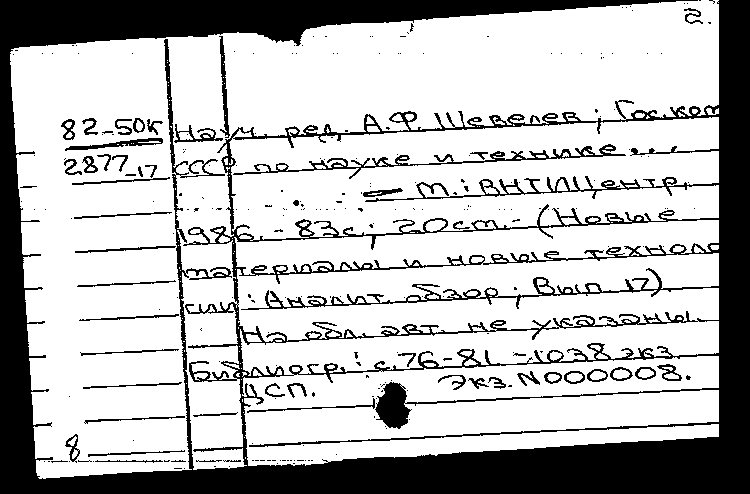 2.
82-50к Науч. ред. А.Ф. Шевелев; Гос.ком
2877-17 СССР по науке и технике...
— М.: ВНТИЦентр,
1986. - 83с.; 20см. - (Новые
материалы и новые техноло
гии: Аналит. обзор; Вып. 17).
На обл. авт. не указаны.
Библиогр.: с.76-81 - 1038 экз.
ДСП. Экз. N000008.
8